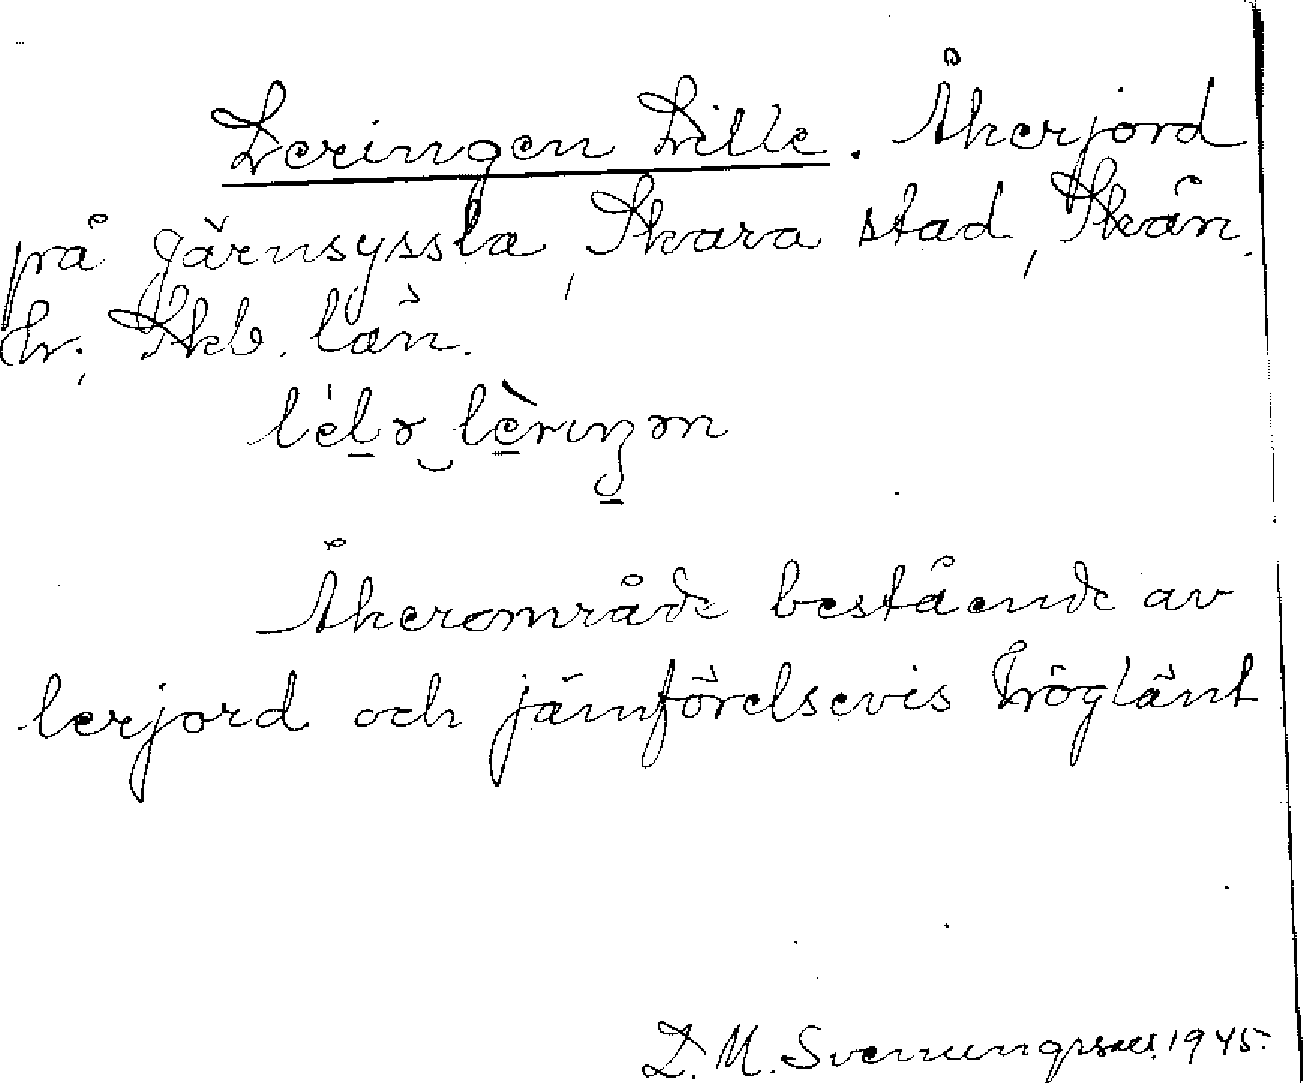 Leringen Lille. Åkerjord
på Järnsyssla, Skara stad, Skån.
hr; Skb. län.
Åkerområde bestående av
lerjord och jämförelsevis höglänt
D. M. Svenungsson. 1945.